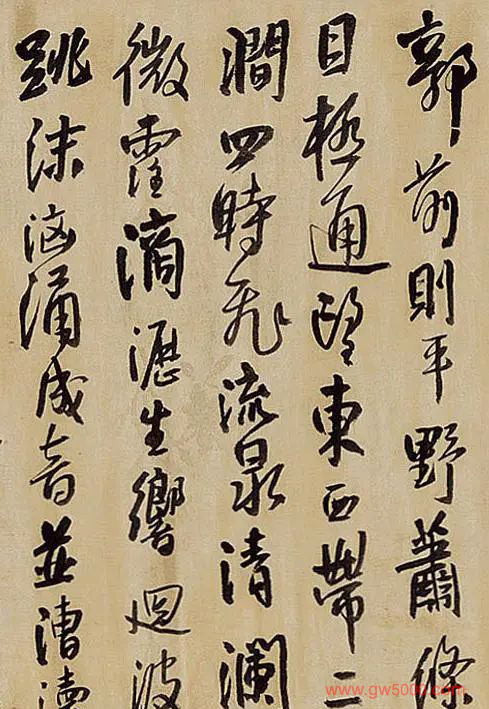 郭前則平野蕭條
目極通望東西帶二
澗四時飛流泉清瀾
微霔滴瀝生響迴波
跳沫洶涌成音並漕瀆
www.gw5000.com